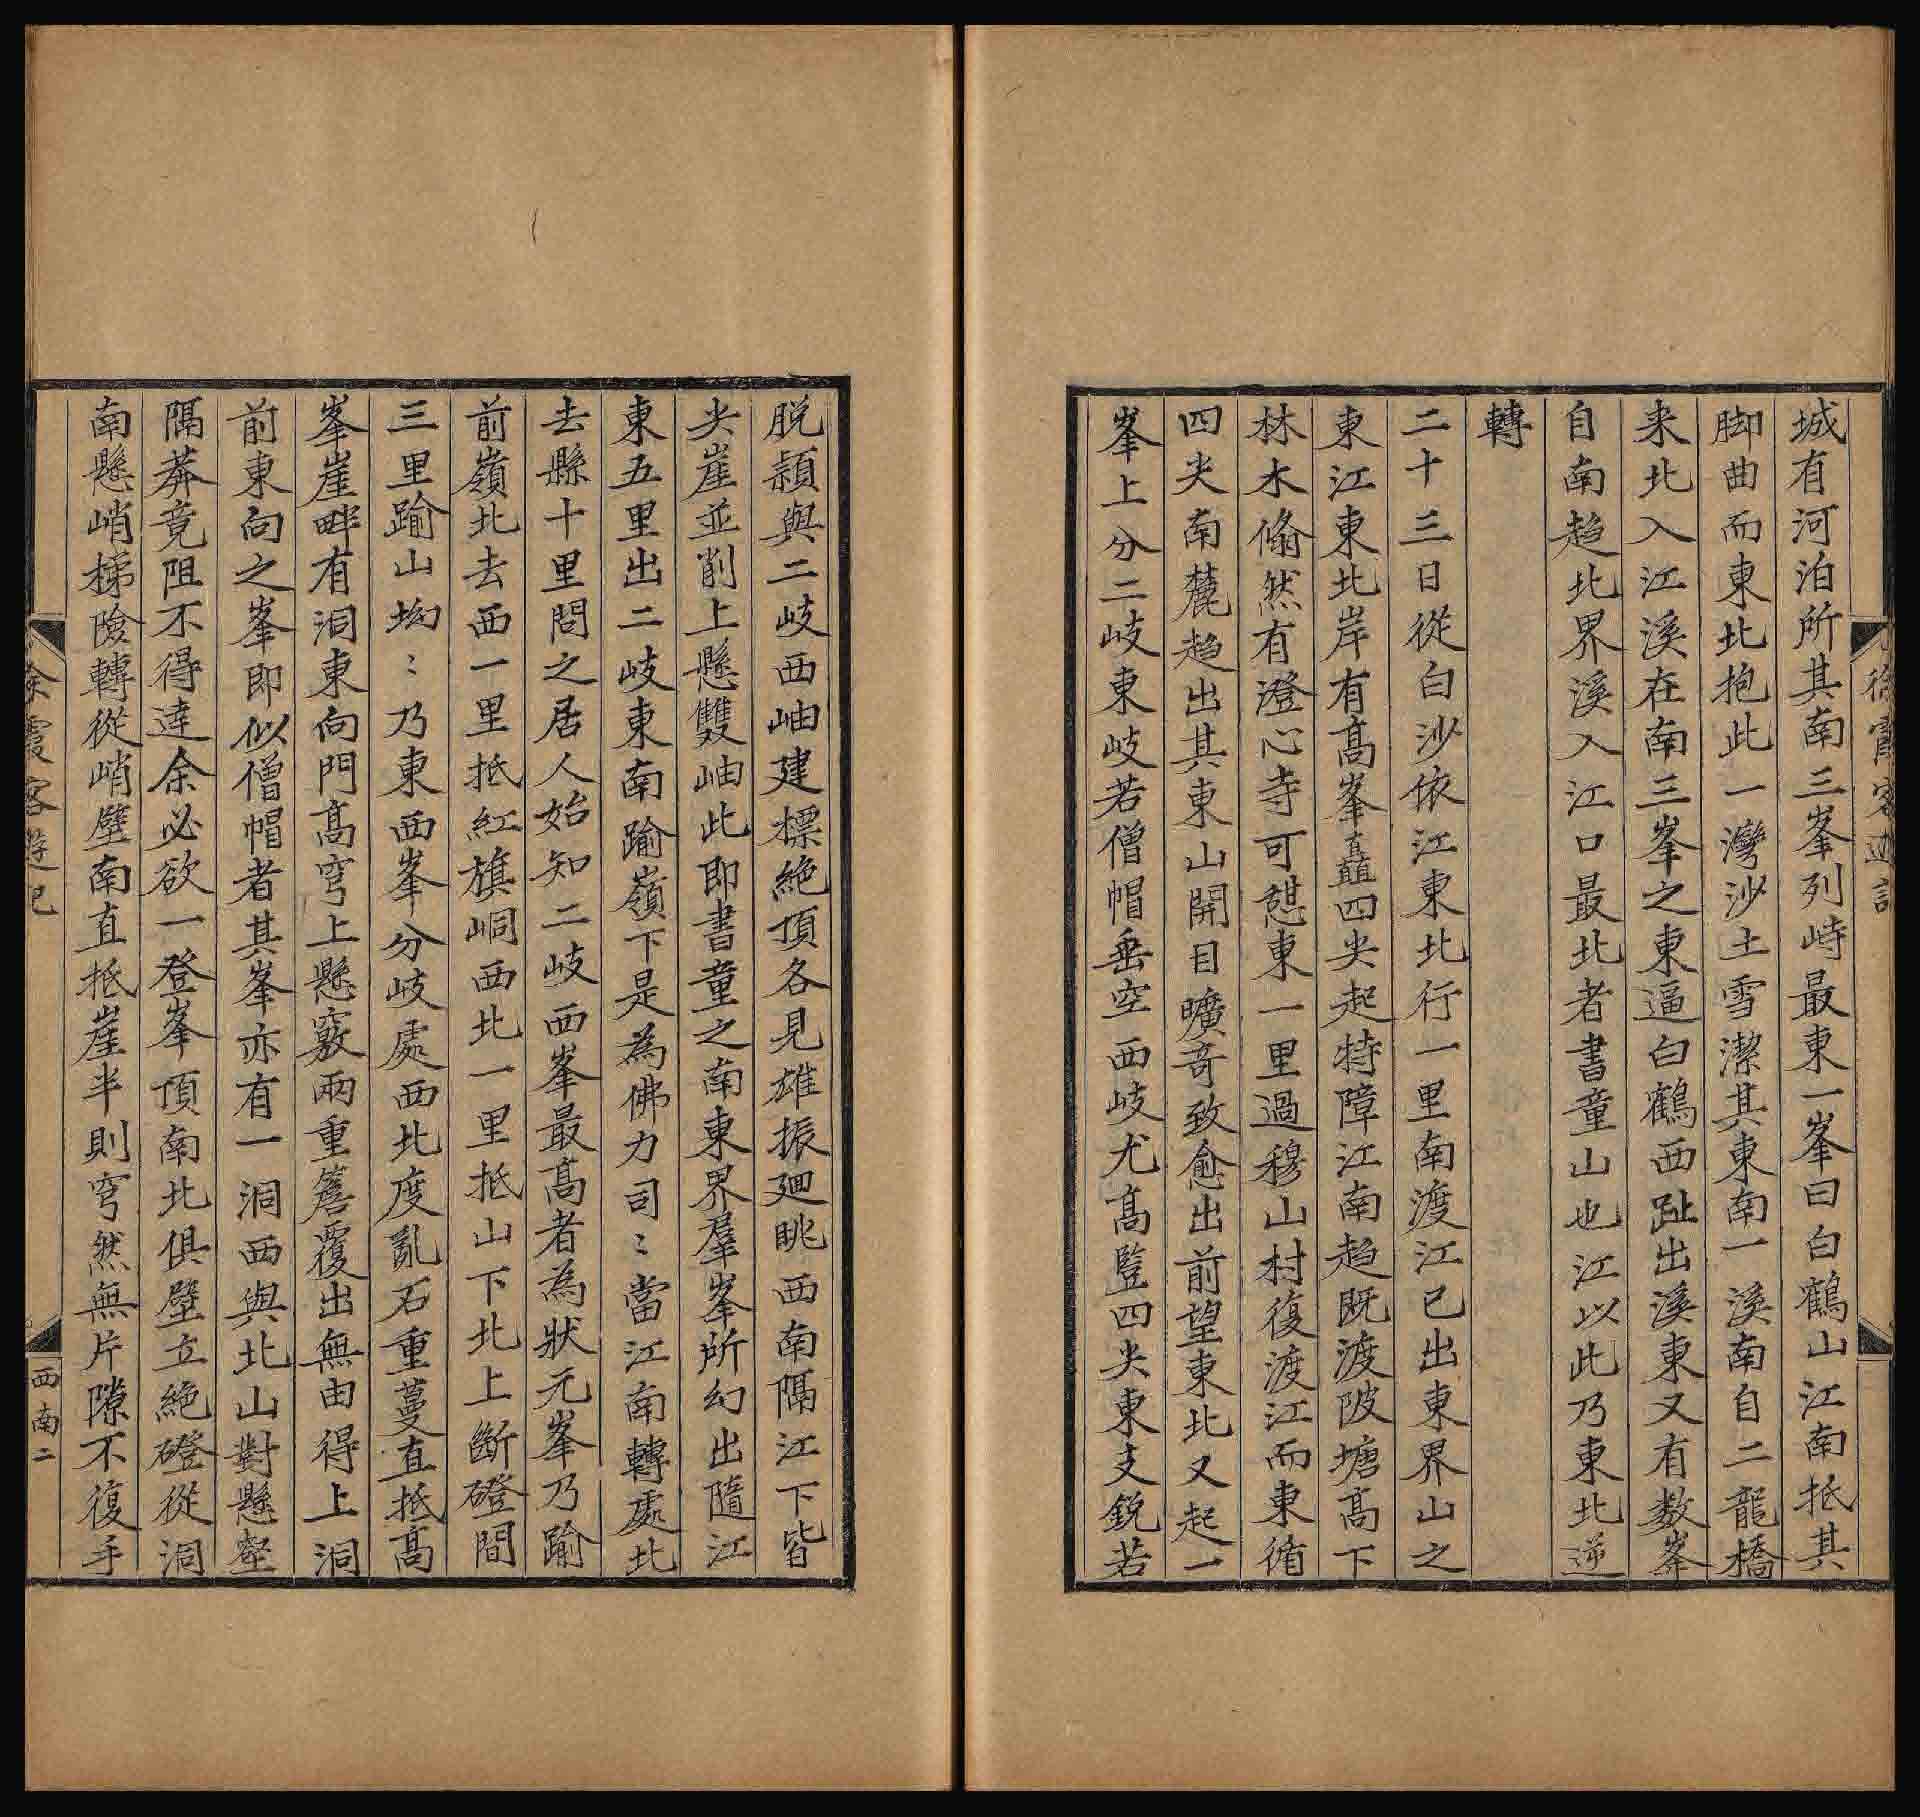 徐霞客遊記
城有河泊所其南三峯列峙最東一峯曰白鶴山江南抵其
脚曲而東北抱此一灣沙土雪潔其東南一溪南自二龍橋
来北入江溪在南三峯之東逼白鶴西趾出溪東又有数峯
自南趋北界溪入江口最北者書童山也江以此乃東北逆
轉
二十三日從白沙依江東北行一里南渡江已出東界山之
東江東北岸有髙峯矗四尖起特障江南趋既渡陂塘髙下
林木翛然有澄心寺可憇東一里過穆山村復渡江而東循
四尖南麓趋出其東山開目曠奇致愈出前望東北又起一
峯上分二岐東岐若僧帽垂空西岐尤髙豎四尖東支鋭若
脱頴與二岐西岫建標絶頂各見雄振廻眺西南隔江下皆
尖崖並削上懸雙岫此即書童之南東界羣峯所幻出隨江
東五里出二岐東南踰嶺下是為佛力司〻當江南轉處北
去縣十里問之居人始知二岐西峯最髙者為狀元峯乃踰
前嶺北去西一里抵紅旗峒西北一里抵山下北上斷磴間
三里踰山坳〻乃東西峯分岐處西北度亂石重蔓直抵髙
峯崖畔有洞東向門髙穹上懸竅兩重簷覆出無由得上洞
前東向之峯即似僧帽者其峯亦有一洞西與北山對懸壑
隔莽竟阻不得達余必欲一登峯頂南北俱壁立絶磴從洞
南懸峭梯險轉從峭壁南直抵崖半則穹然無片隙不復手
徐霞客遊記
西南二